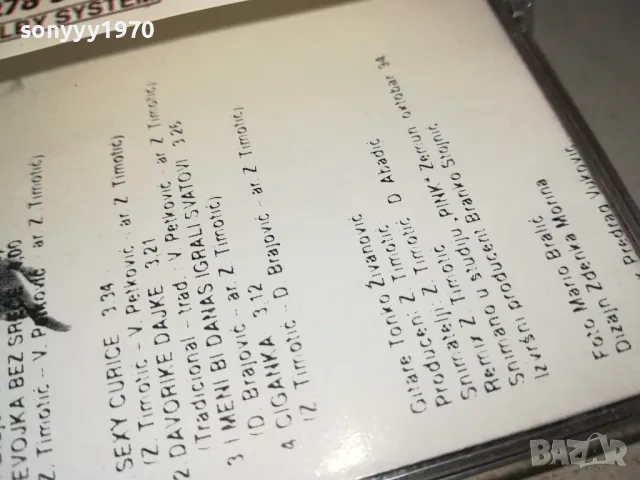 sonyyy1970
278
LBY SYSTEM
EVOJKA BEZ SRE 00
Z. Timotić - V. Petković - ar. Z. Timotić)
SEXY CURICE 3.34
(Z. Timotić - V. Petković - ar. Z. Timotić)
2. DAVORIKE DAJKE 3.21
(Tradicional - trad. - V. Petković - ar. Z. Timotić)
3 I MENI BI DANAS IGRALI SVATOVI 3.26
(D. Brajović - ar. Z. Timotić)
4 CIGANKA 3.12
(Z. Timotić - D. Brajović - ar. Z. Timotić)
Gitare Tonko Živanović
Producent Z. Timotić D Abadić
Producent Z. Timotić
Snimatelji Z. Timotić
Remix Z. Timotić "PINK" Zemun oktobar 94
Snimano u studiju
Izvršni producent Branko Stojnić
Foto Mario Bralić
Dizajn Zdenka Morina
Predrag Vuković
BAZAR